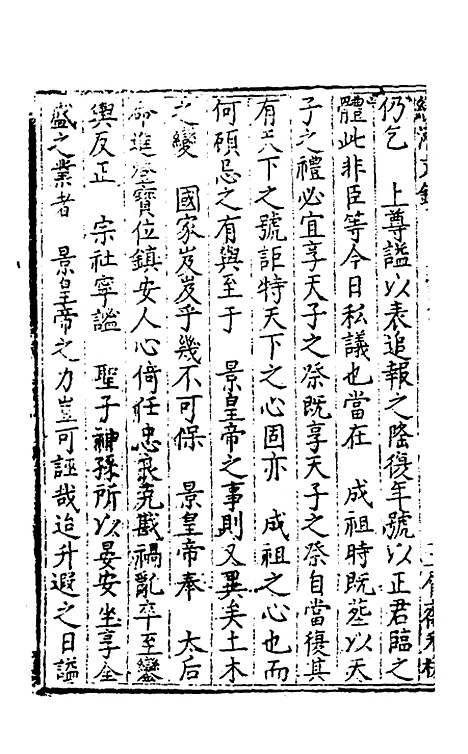 仍乞　上尊謚以表追報之隆復年號以正君臨之
體此非臣等今日私議也當在　成祖時既塟以天
子之禮必宜享天子之祭既享天子之祭自當復其
有天下之號詎特天下之心固亦　成祖之心也而
何顧忌之有與至于　景皇帝之事則又異矣土木
之變　國家岌岌乎幾不可保　景皇帝奉　太后
命進登寶位鎮安人心倚任忠良克戡禍亂卒至鑾
輿反正　宗社寧謐　聖子神孫所以晏安坐享全
盛之業者　景皇帝之力豈可誣哉迨升遐之日謚